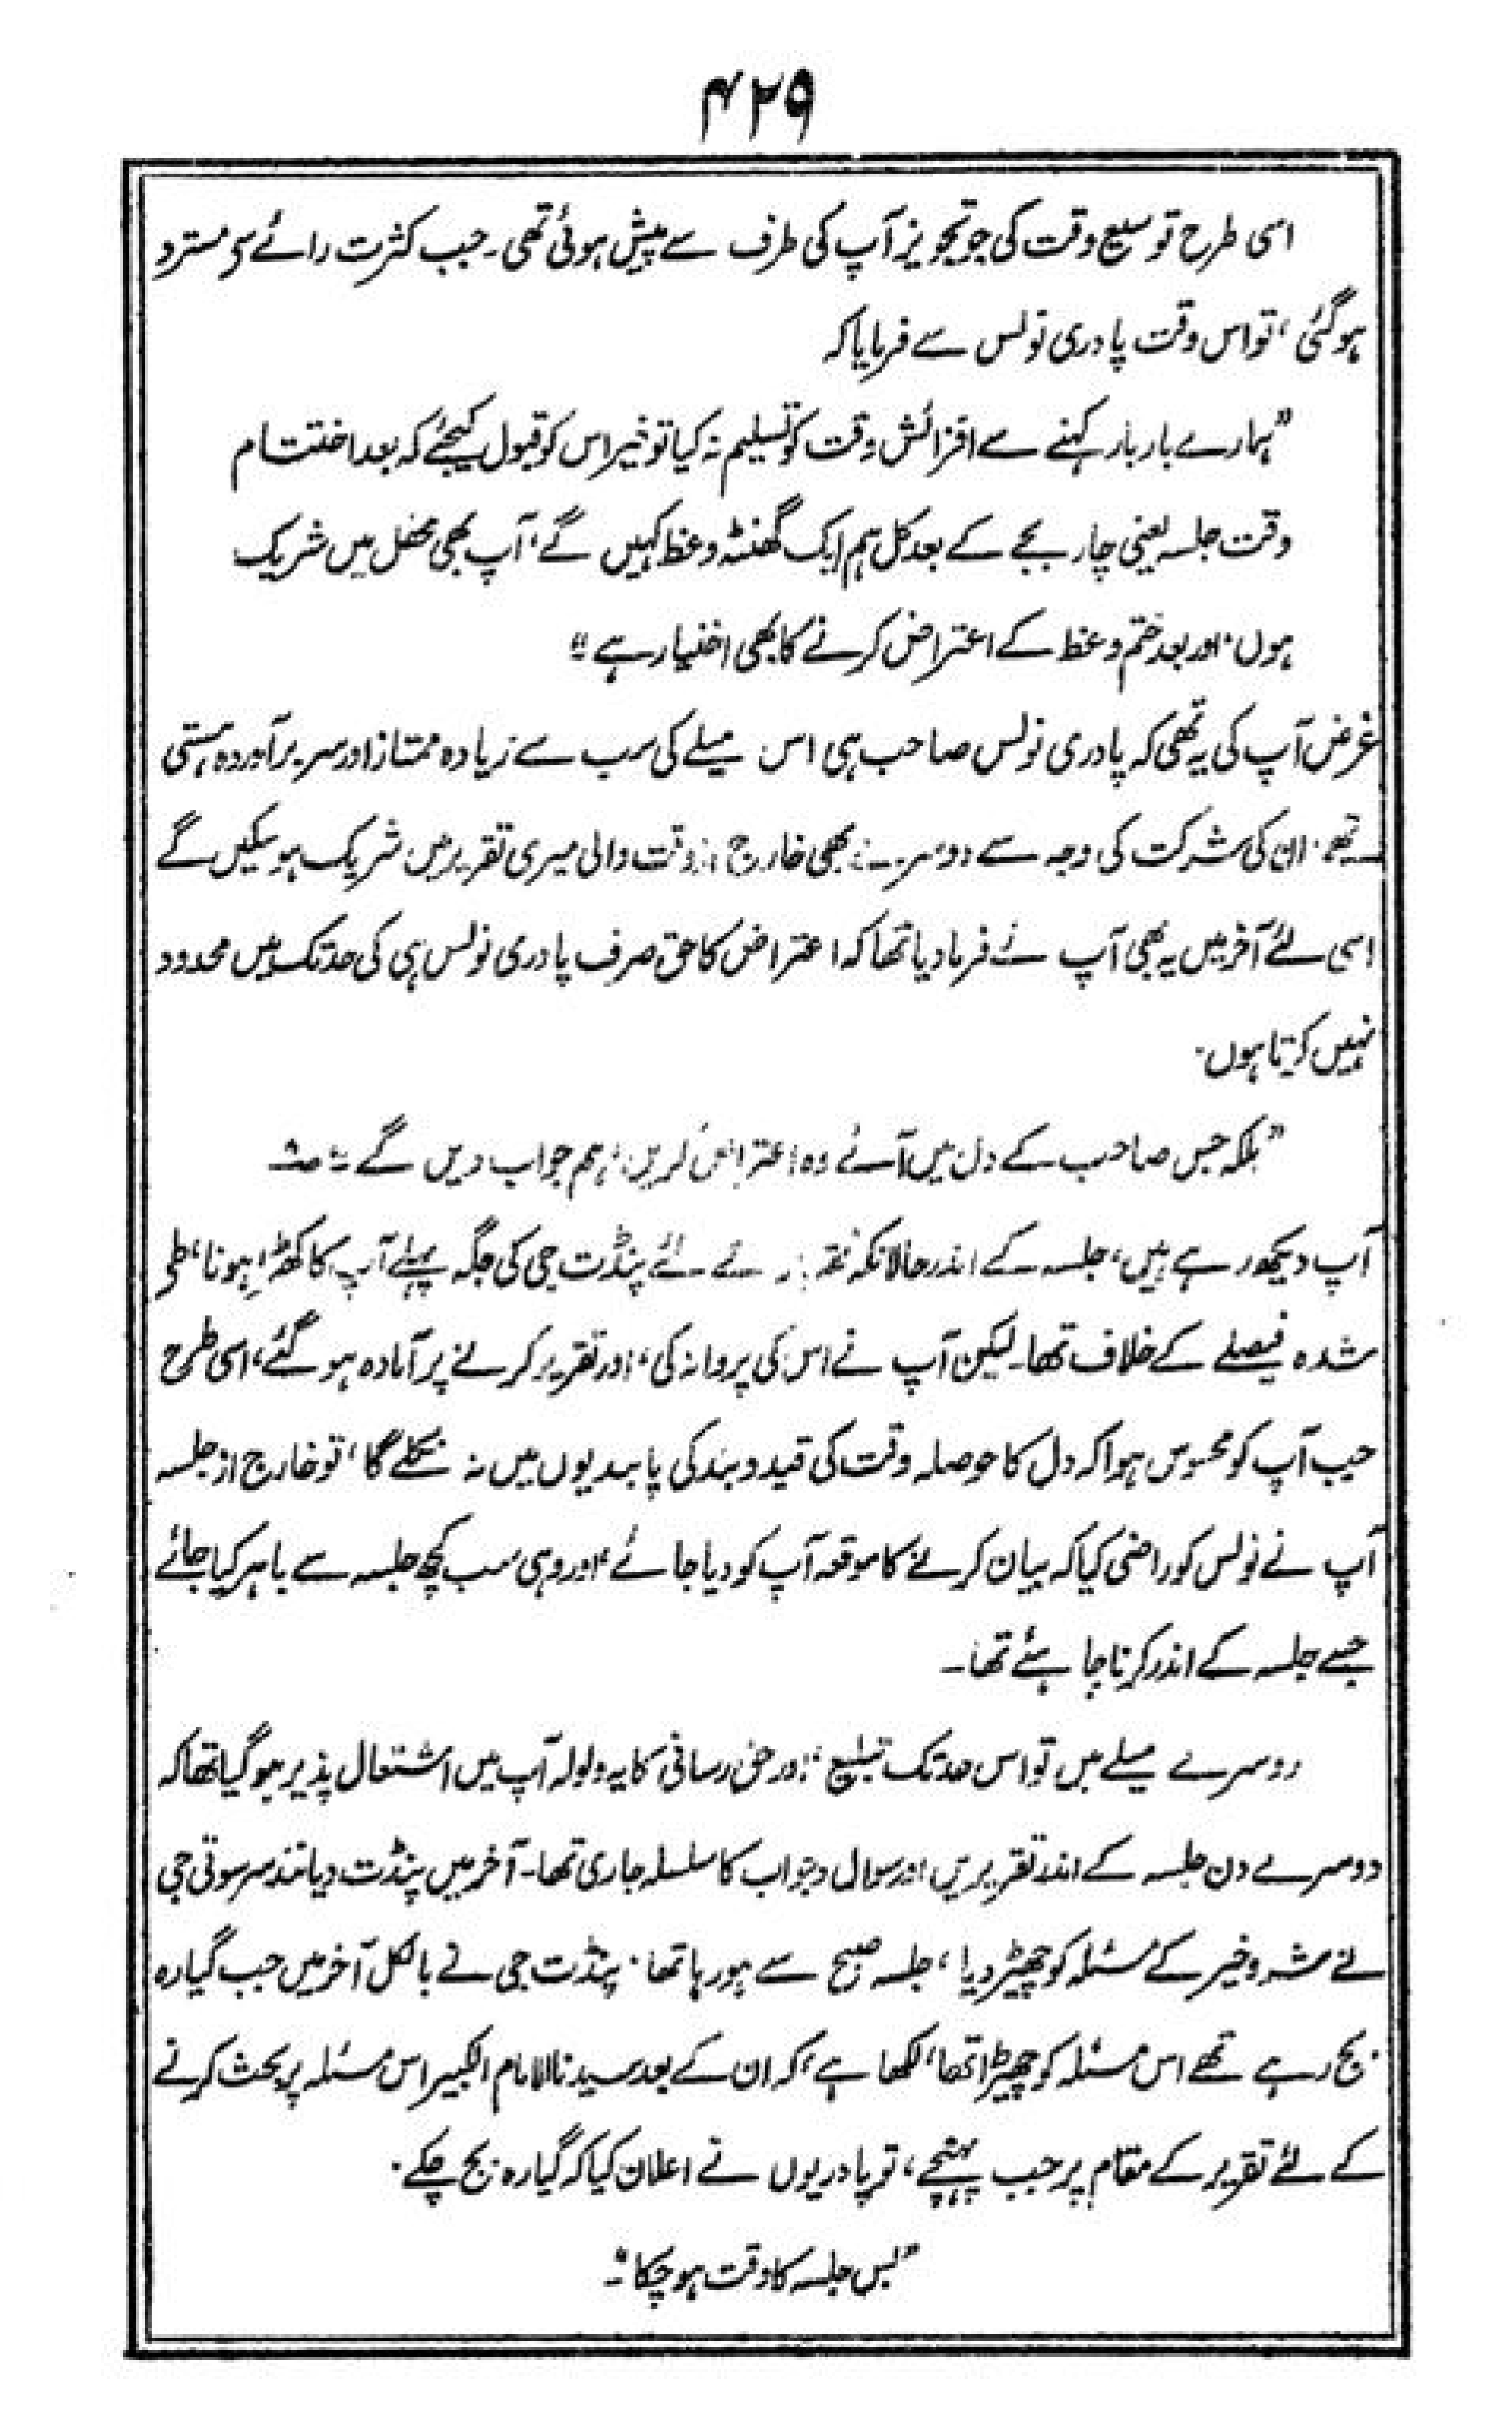 ۴۲۹
اسی طرح توسیع وقت کی جو تجویز آپ کی طرف سے پیش ہوئی تھی۔ جب کثرت رائے سے مسترد
ہوگئی، تو اس وقت پادری نولس سے فرمایا کہ
"ہمارے بار بار کہنے سے افزائش وقت کو تسلیم نہ کیا تو خیر اس کو قبول کیجئے کہ بعد اختتام
وقت جلسہ یعنی چار بجے کے بعد کل ہم ایک گھنٹہ وعظ کہیں گے، آپ بھی محفل میں شریک
ہوں، اور بعد ختم وعظ کے اعتراض کرنے کا بھی اختیار ہے"
غرض آپ کی یہ تھی کہ پادری نولس صاحب ہی اس میلے کی سب سے زیادہ ممتاز اور سربرآوردہ ہستی
تھے، ان کی شرکت کی وجہ سے دوسرے بھی خارج از وقت والی میری تقریر میں شریک ہوسکیں گے
اسی لئے آخر میں یہ بھی آپ نے فرما دیا تھا کہ اعتراض کا حق صرف پادری نولس ہی کی حد تک میں محدود
نہیں کرتا ہوں۔
"بلکہ جس صاحب کے دل میں آئے وہ اعتراض کریں، ہم جواب دیں گے"
آپ دیکھ رہے ہیں، جلسہ کے اندر حالانکہ تقریر کے لئے پنڈت جی کی جگہ پہلے آپ کا کھڑا ہونا، طے
شدہ فیصلے کے خلاف تھا۔ لیکن آپ نے اس کی پروا نہ کی، اور تقریر کرنے پر آمادہ ہوگئے، اسی طرح
جب آپ کو محسوس ہوا کہ دل کا حوصلہ وقت کی قید و بند کی پابندیوں میں نہ نکلے گا، تو خارج از جلسہ
آپ نے نولس کو راضی کیا کہ بیان کرنے کا موقعہ آپ کو دیا جائے، اور وہی سب کچھ جلسہ سے باہر کیا جائے
جسے جلسہ کے اندر کرنا چاہئے تھا۔
دوسرے میلے میں تو اس حد تک تبلیغ، اور حق رسانی کا یہ ولولہ آپ میں اشتعال پذیر ہوگیا تھا کہ
دوسرے دن جلسہ کے اندر تقریریں اور سوال و جواب کا سلسلہ جاری تھا۔ آخر میں پنڈت دیانند سرسوتی جی
نے شر و خیر کے مسئلہ کو چھیڑ دیا، جلسہ صبح سے ہورہا تھا، پنڈت جی نے بالکل آخر میں جب گیارہ
بج رہے تھے اس مسئلہ کو چھیڑا تھا، لکھا ہے، کہ ان کے بعد سیدنا الامام الکبیر اس مسئلہ پر بحث کرنے
کے لئے تقریر کے مقام پر جب پہنچے، تو پادریوں نے اعلان کیا کہ گیارہ بج چکے۔
"بس جلسہ کا وقت ہوچکا"۔